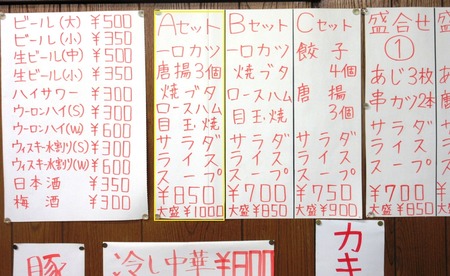 ビール(大) ¥500
ビール(小) ¥350
生ビール(中) ¥500
生ビール(小) ¥350
ハイサワー ¥300
ウーロンハイ(S) ¥300
ウーロンハイ(W) ¥600
ウィスキー水割り(S) ¥300
ウィスキー水割り(W) ¥600
日本酒 ¥350
梅酒 ¥300
Aセット
一ロカツ
唐揚3個
焼ブタ
ロースハム
目玉焼
サラダ
ライス
スープ
¥850
大盛¥1000
Bセット
一ロカツ
焼ブタ
ロースハム
目玉焼
サラダ
ライス
スープ
¥700
大盛¥850
Cセット
餃子4個
唐揚3個
サラダ
ライス
スープ
¥750
大盛¥900
盛合せ
①
あじ3枚
串カツ2本
サラダ
ライス
スープ
¥700
大盛¥850
豚
冷し中華¥800
カキ